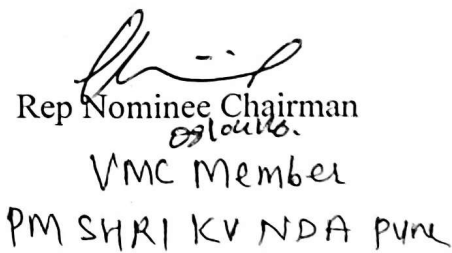 Rep Nominee Chairman
VMC Member
PM SHRI KV NDA Pune